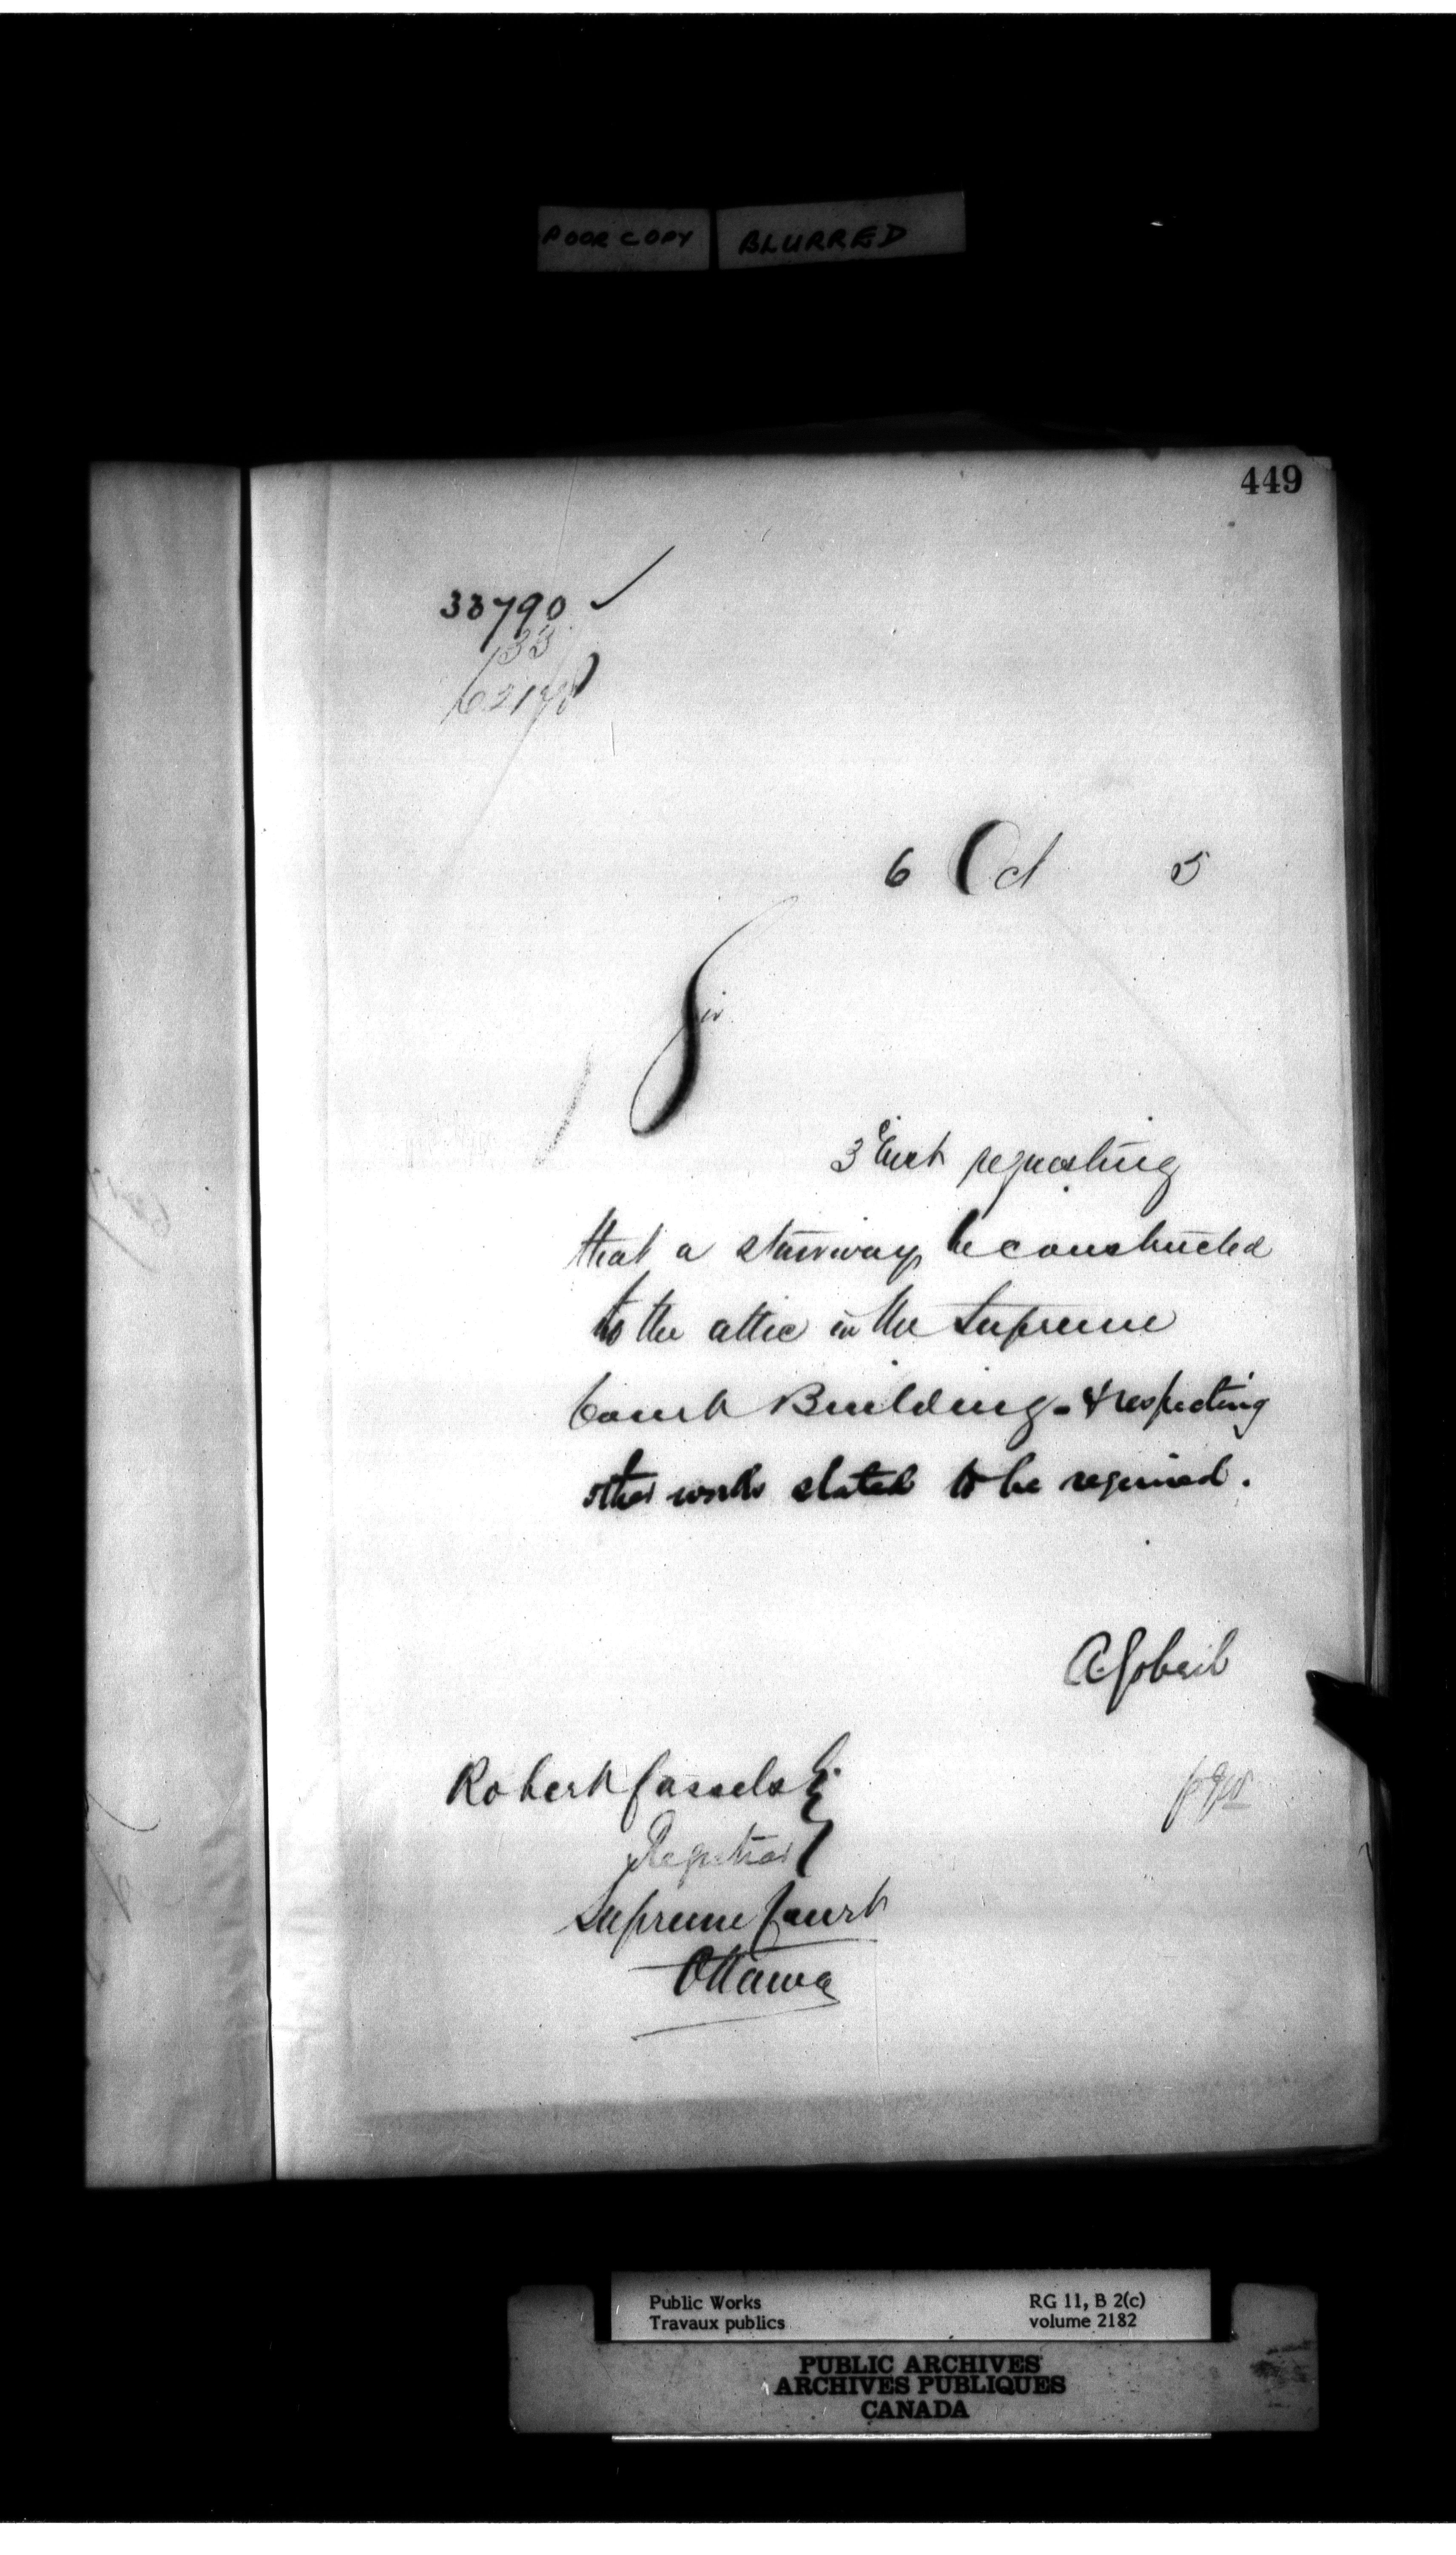 POOR COPY BLURRED
449
33790 ✓
33
6 Oct 5
Sir
3d Inst requesting
that a stairway be constructed
to the attic in the Supreme
Court Building - & respecting
other works stated to be required.
A Gobeil
Robert Cassels Esq.
Registrar
Supreme Court
Ottawa
Public Works RG 11, B 2(c)
Travaux publics volume 2182
PUBLIC ARCHIVES
ARCHIVES PUBLIQUES
CANADA